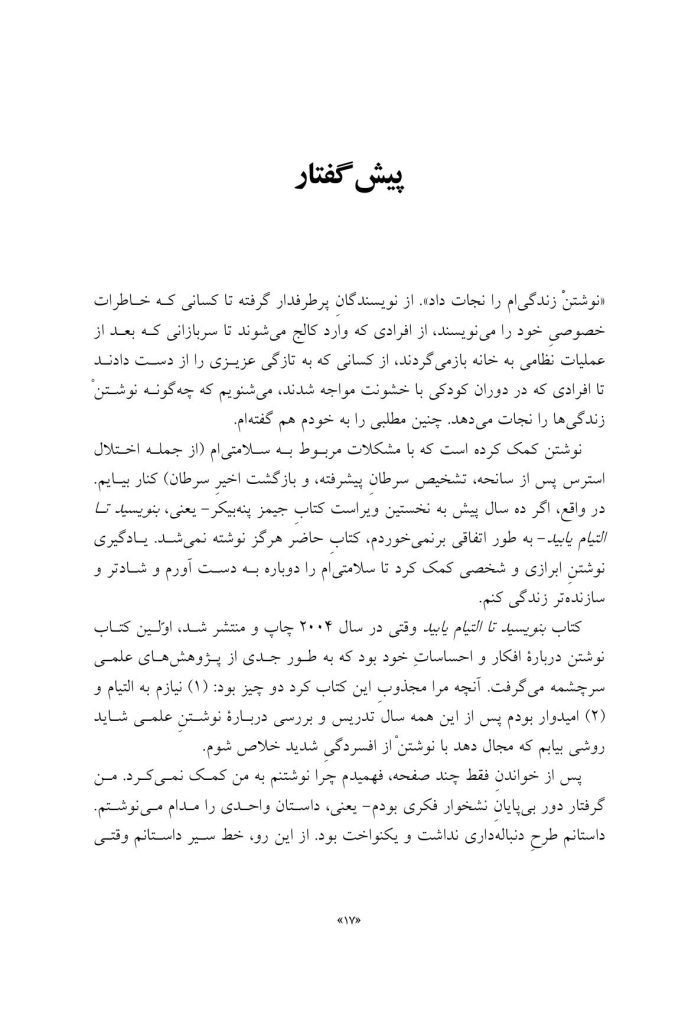 پیش‌گفتار
«نوشتنْ زندگی‌ام را نجات داد». از نویسندگانِ پرطرفدار گرفته تا کسانی که خاطرات
خصوصیِ خود را می‌نویسند، از افرادی که وارد کالج می‌شوند تا سربازانی که بعد از
عملیات نظامی به خانه بازمی‌گردند، از کسانی که به تازگی عزیزی را از دست دادند
تا افرادی که در دوران کودکی با خشونت مواجه شدند، می‌شنویم که چه‌گونه نوشتنْ
زندگی‌ها را نجات می‌دهد. چنین مطلبی را به خودم هم گفته‌ام.
نوشتن کمک کرده است که با مشکلات مربوط به سلامتی‌ام (از جمله اختلال
استرس پس از سانحه، تشخیص سرطانِ پیشرفته، و بازگشت اخیرِ سرطان) کنار بیایم.
در واقع، اگر ده سال پیش به نخستین ویراست کتابِ جیمز پنه‌بیکر- یعنی، بنویسید تا
التیام یابید- به طور اتفاقی برنمی‌خوردم، کتاب حاضر هرگز نوشته نمی‌شد. یادگیری
نوشتنِ ابرازی و شخصی کمک کرد تا سلامتی‌ام را دوباره به دست آورم و شادتر و
سازنده‌تر زندگی کنم.
کتاب بنویسید تا التیام یابید وقتی در سال ۲۰۰۴ چاپ و منتشر شد، اوّلین کتاب
نوشتن دربارۀ افکار و احساساتِ خود بود که به طور جدی از پژوهش‌های علمی
سرچشمه می‌گرفت. آنچه مرا مجذوبِ این کتاب کرد دو چیز بود: (۱) نیازم به التیام و
(۲) امیدوار بودم پس از این همه سال تدریس و بررسی دربارۀ نوشتنِ علمی شاید
روشی بیابم که مجال دهد با نوشتنْ از افسردگیِ شدید خلاص شوم.
پس از خواندنِ فقط چند صفحه، فهمیدم چرا نوشتنم به من کمک نمی‌کرد. من
گرفتار دور بی‌پایانِ نشخوار فکری بودم- یعنی، داستان واحدی را مدام می‌نوشتم.
داستانم طرحِ دنباله‌داری نداشت و یکنواخت بود. از این رو، خط سیر داستانم وقتی
«۱۷»